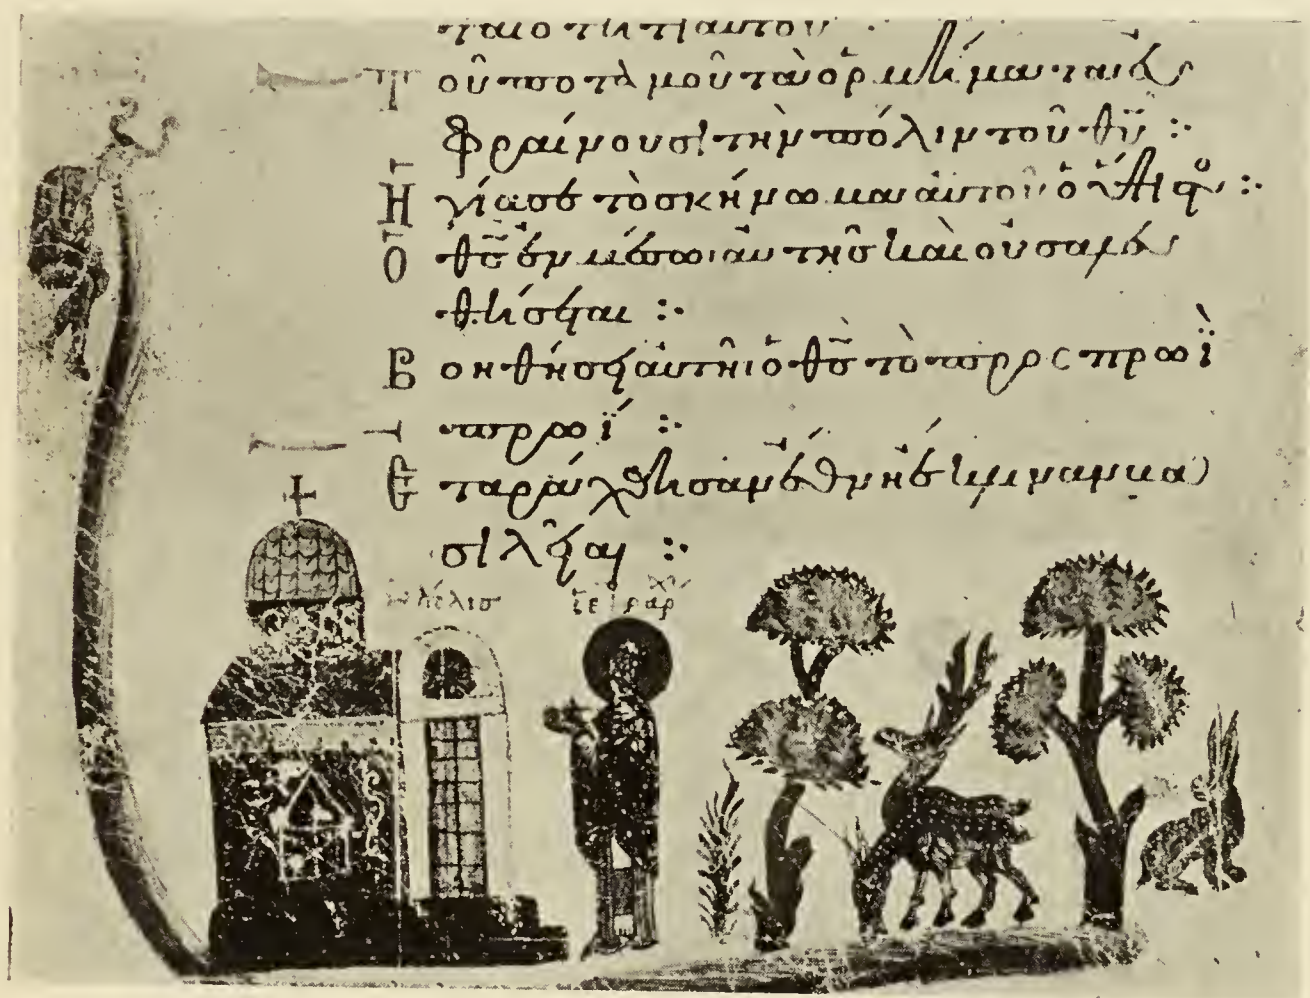 τοῦ ποταμοῦ τὰ ὁρμήματα εὐ
φραίνουσι τὴν πόλιν τοῦ θῡ :·
Ἡγίασε τὸ σκήνωμα αὐτοῦ ὁ ὕψιστο :·
Ὁ θς̄ ἐν μέσω αὐτῆς καὶ οὐ σαλευ
θήσεται :·
Βοηθήσει αὐτῆι ὁ θς̄ τὸ πρὸς πρωῒ
πρωΐ :·
Ἐταράχθησαν ἔθνη ἔκλιναν βα
σιλεῖαι :·
ἡ πόλις